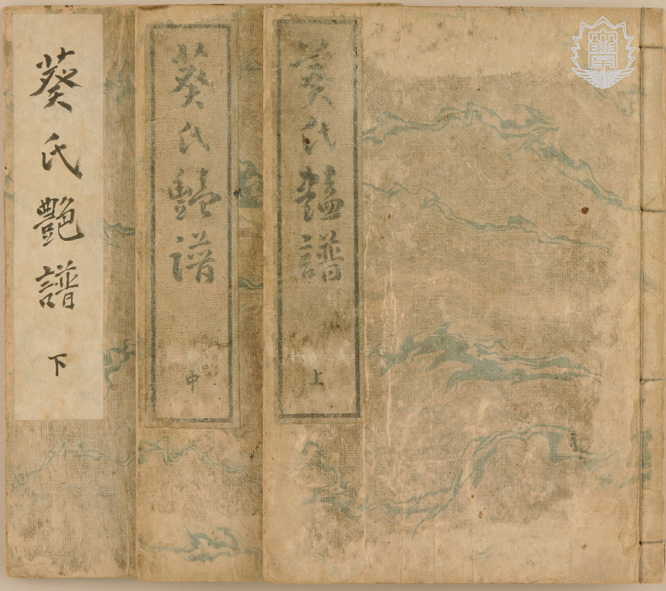 葵氏艶譜
上
葵氏艶譜
中
葵氏艷譜
下